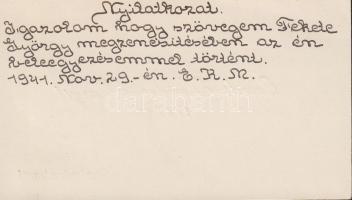 Nyilatkozat.
Igazolom hogy szövegem Fekete
György megzenésitésében az én
beleegyezésemmel történt.
1941. Nov. 29.-én. E. K. M.
darabanth